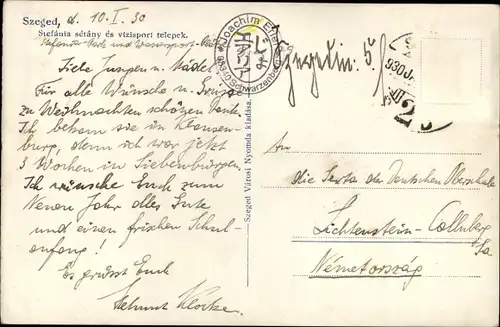 Szeged, d. 10. I. 30
Stefánia sétány és vizisport telepek.
Stefania Park und Wassersport-
Liebe Jungen u. Mädel
Für alle Wünsche u. Grüsse
zu Weihnachten schönen Dank.
Ich bekam sie in Klausen-
burg, denn ich war jetzt
3 Wochen in Siebenbürgen
Ich wünsche Euch zum
Neuen Jahr alles Gute
und einen frischen Schul-
anfang!
Es grüsst Euch
Helmut Klocke
Szeged Városi Nyomda kiadása.
Joachim
Schwarzenberg
Szegedin. 5/
930
An
die Sexta der Deutschen Oberschule
Lichtenstein-Callnberg
i/Sa
Németország